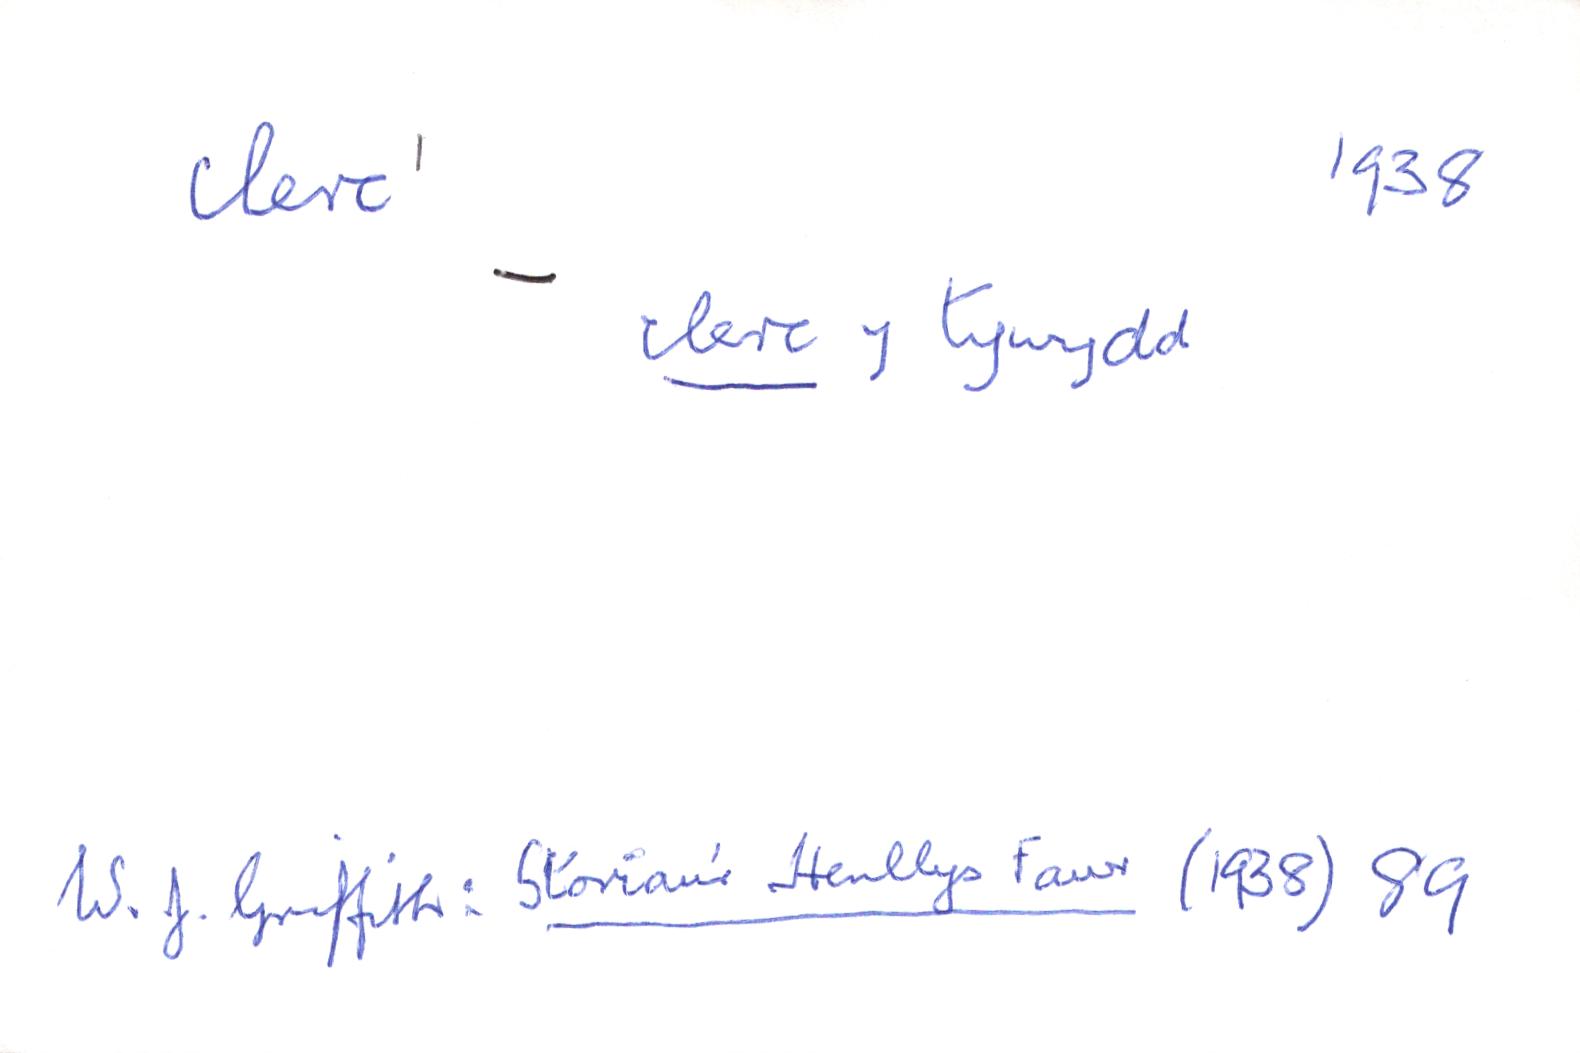 clerc¹ 1938
–
clerc y tywydd
W. J. Griffith: Storïau'r Henllys Fawr (1938) 89